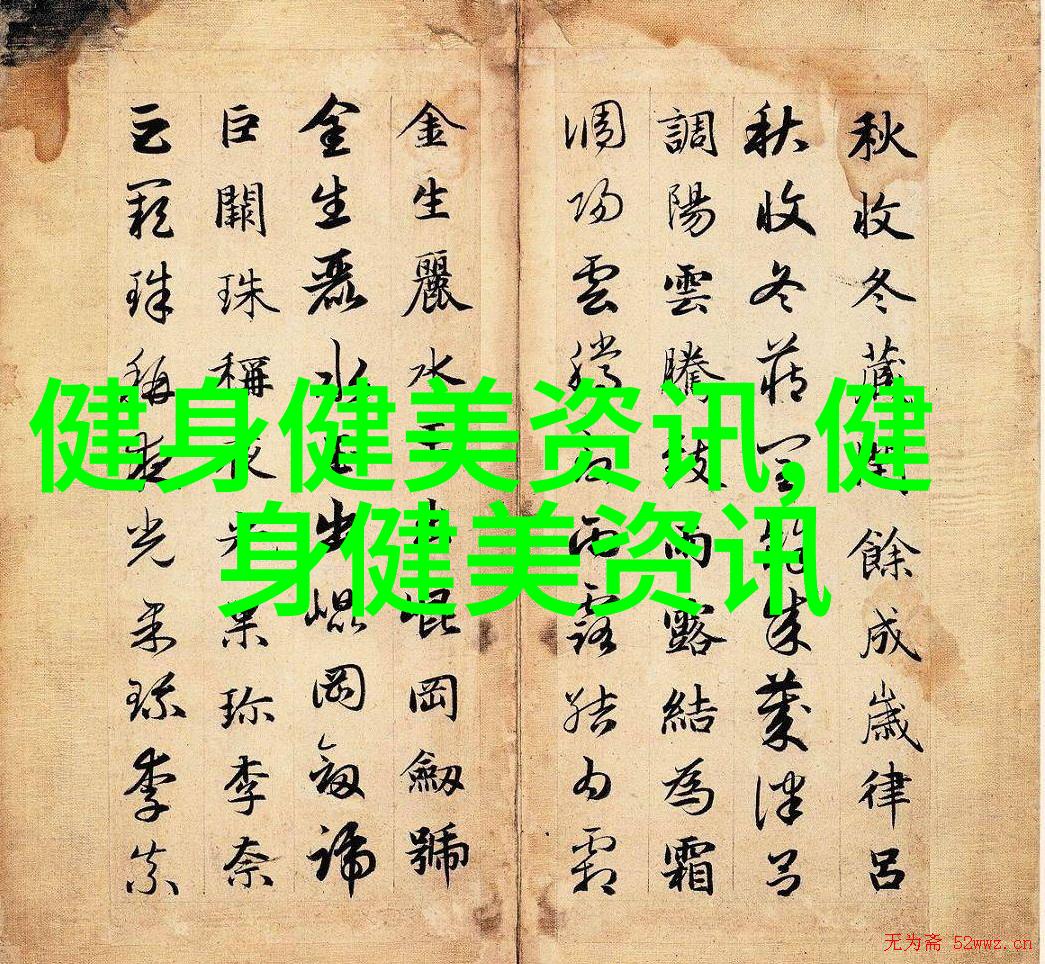 秋收冬藏閏餘成歲律呂
秋收冬藏閏餘成歲律呂
調陽雲騰致雨露結為霜
調陽雲騰致雨露結為霜
金生麗水玉出崐岡劒號
金生麗水玉出崐岡劒號
巨闕珠稱夜光果珍李柰
巨闕珠稱夜光果珍李柰
健身健美资讯,健
身健美资讯
无为斋 52wwz.cn